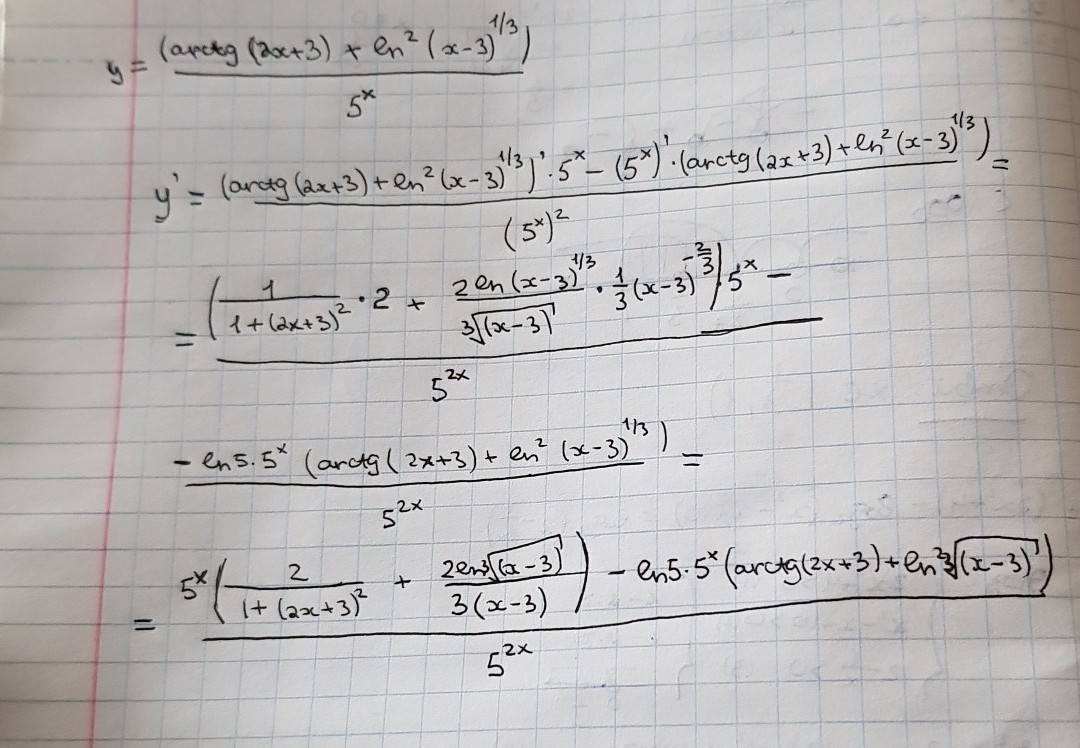 y = (arctg (2x+3) + ln² (x-3)^1/3) / 5^x
y' = (arctg (2x+3) + ln² (x-3)^1/3)' · 5^x - (5^x)' · (arctg (2x+3) + ln² (x-3)^1/3) / (5^x)² =
= (1/(1+(2x+3)²) · 2 + 2 ln (x-3)^1/3 / ∛(x-3) · 1/3 (x-3)^-2/3) 5^x - / 5^2x
- ln5 · 5^x (arctg (2x+3) + ln² (x-3)^1/3) / 5^2x =
= 5^x (2/(1+(2x+3)²) + 2 ln ∛(x-3) / 3(x-3)) - ln5 · 5^x (arctg (2x+3) + ln² ∛(x-3)) / 5^2x